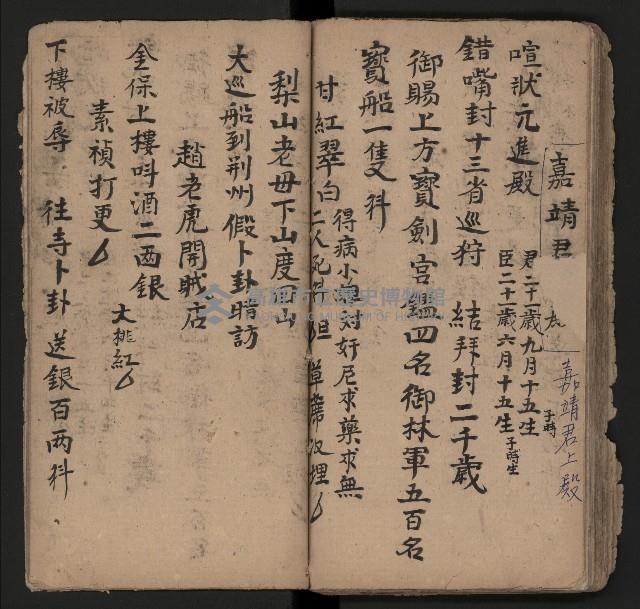 嘉靖君上殿
嘉靖君
喧狀元進殿 君二十一歲九月十五生子時
臣二十一歲六月十五生子時生
錯嘴封十三省巡狩 結拜封二千歲
御賜上方寶劍宮鑑四名御林軍五百名
寶船一隻科
得病小魚対奸尼求藥求無
甘紅翠白二人死 草蓆収埋
梨山老母下山度回山
大巡船到荆州假卜卦暗訪
趙老虎開賊店
金保上樓叫酒二両銀
大排紅
素禎打更
下樓被辱 往寺卜卦 送銀百両科
高雄市立歷史博物館
KAOHSIUNG MUSEUM OF HISTORY